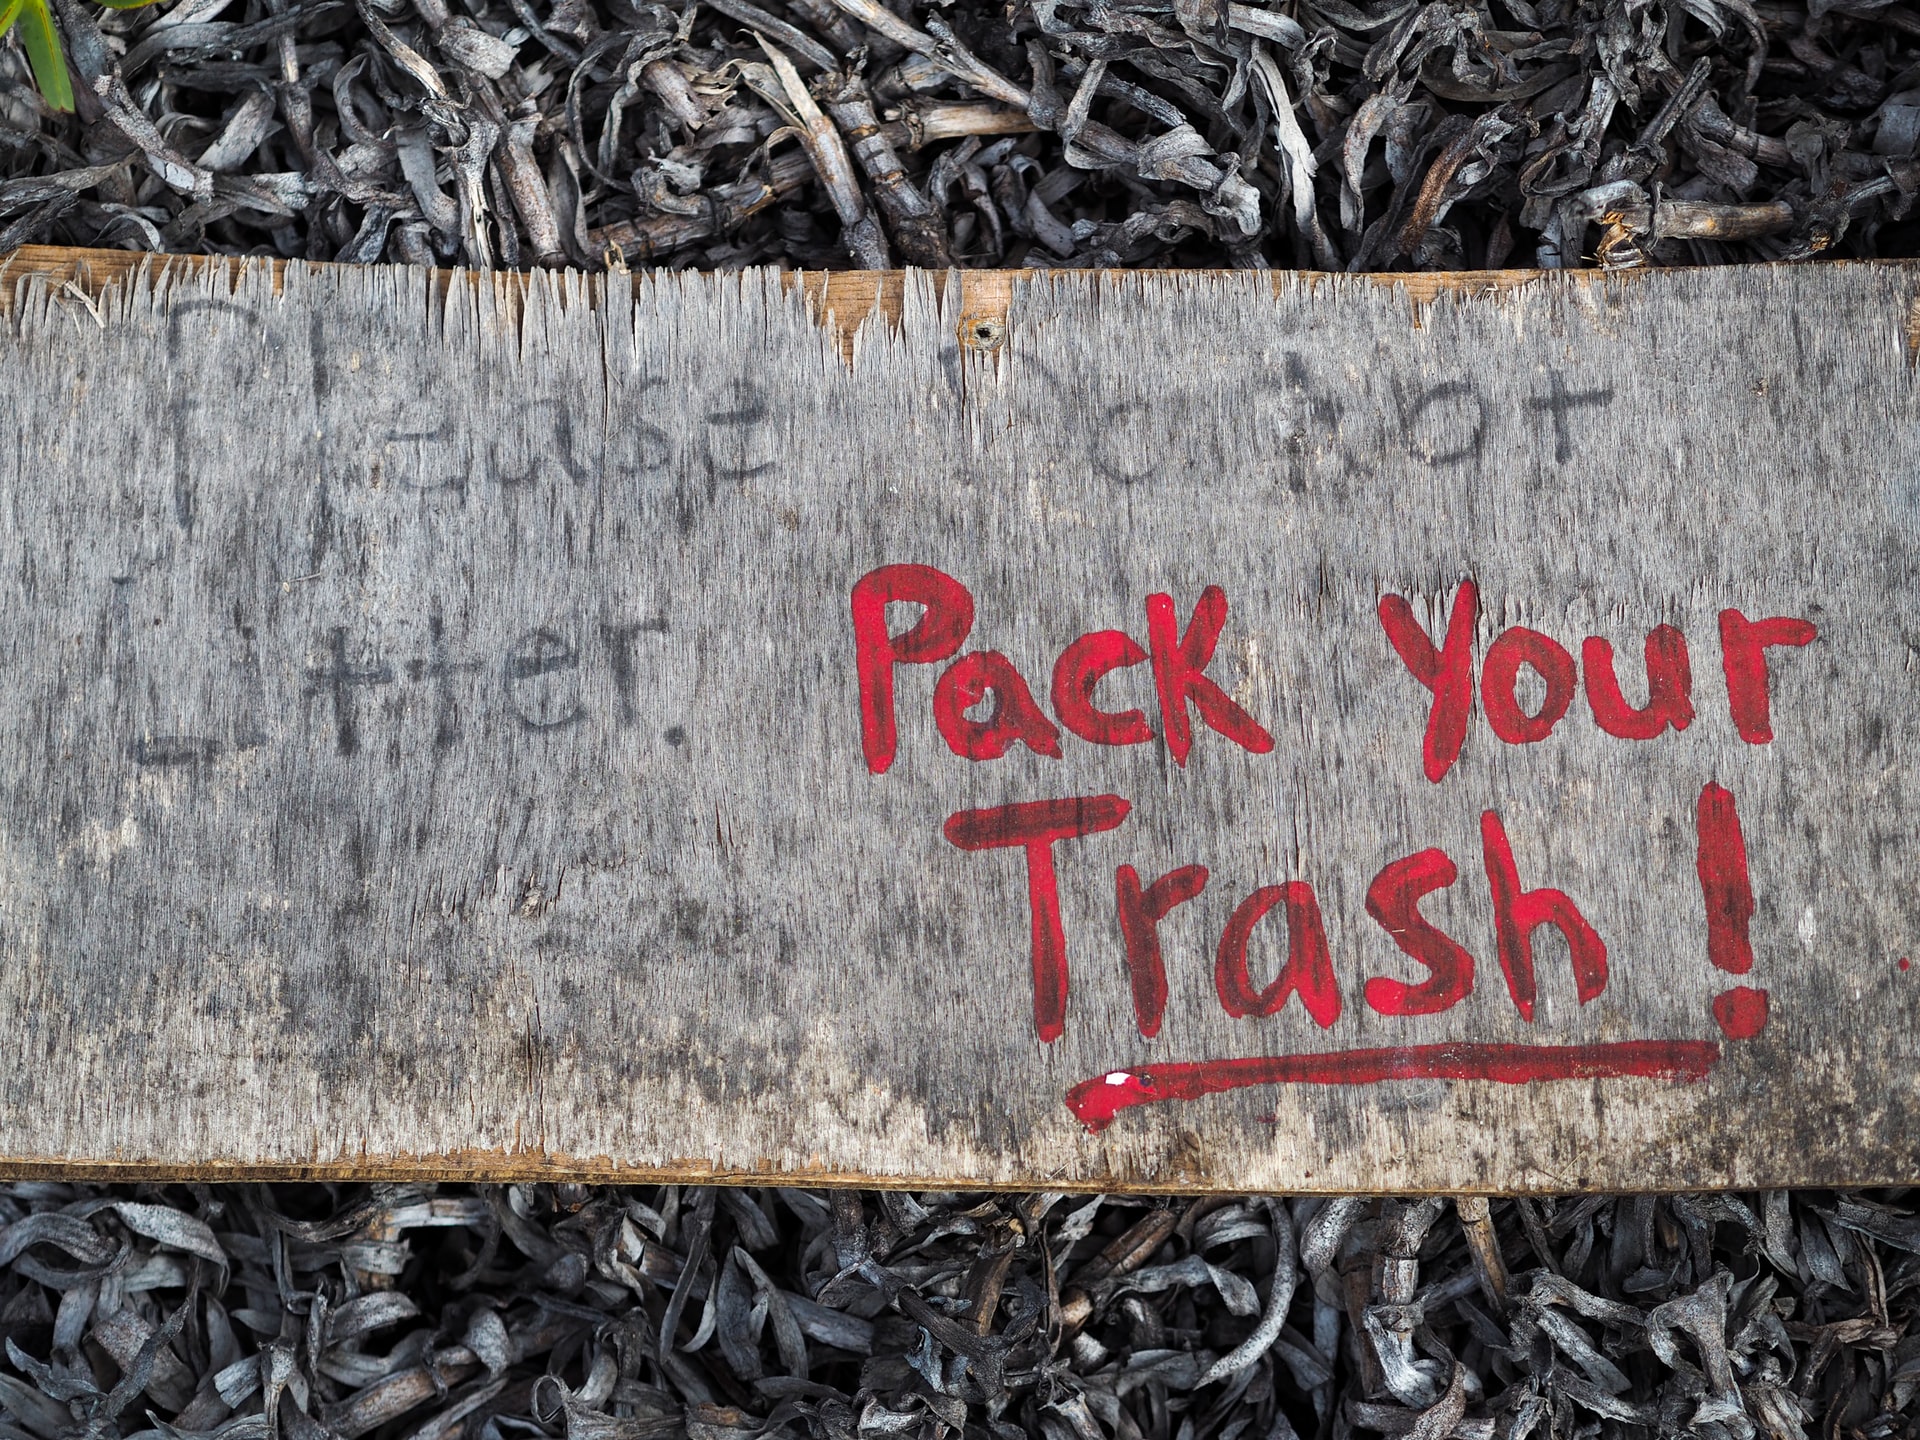 Please Do not
Litter.
Pack your
Trash!